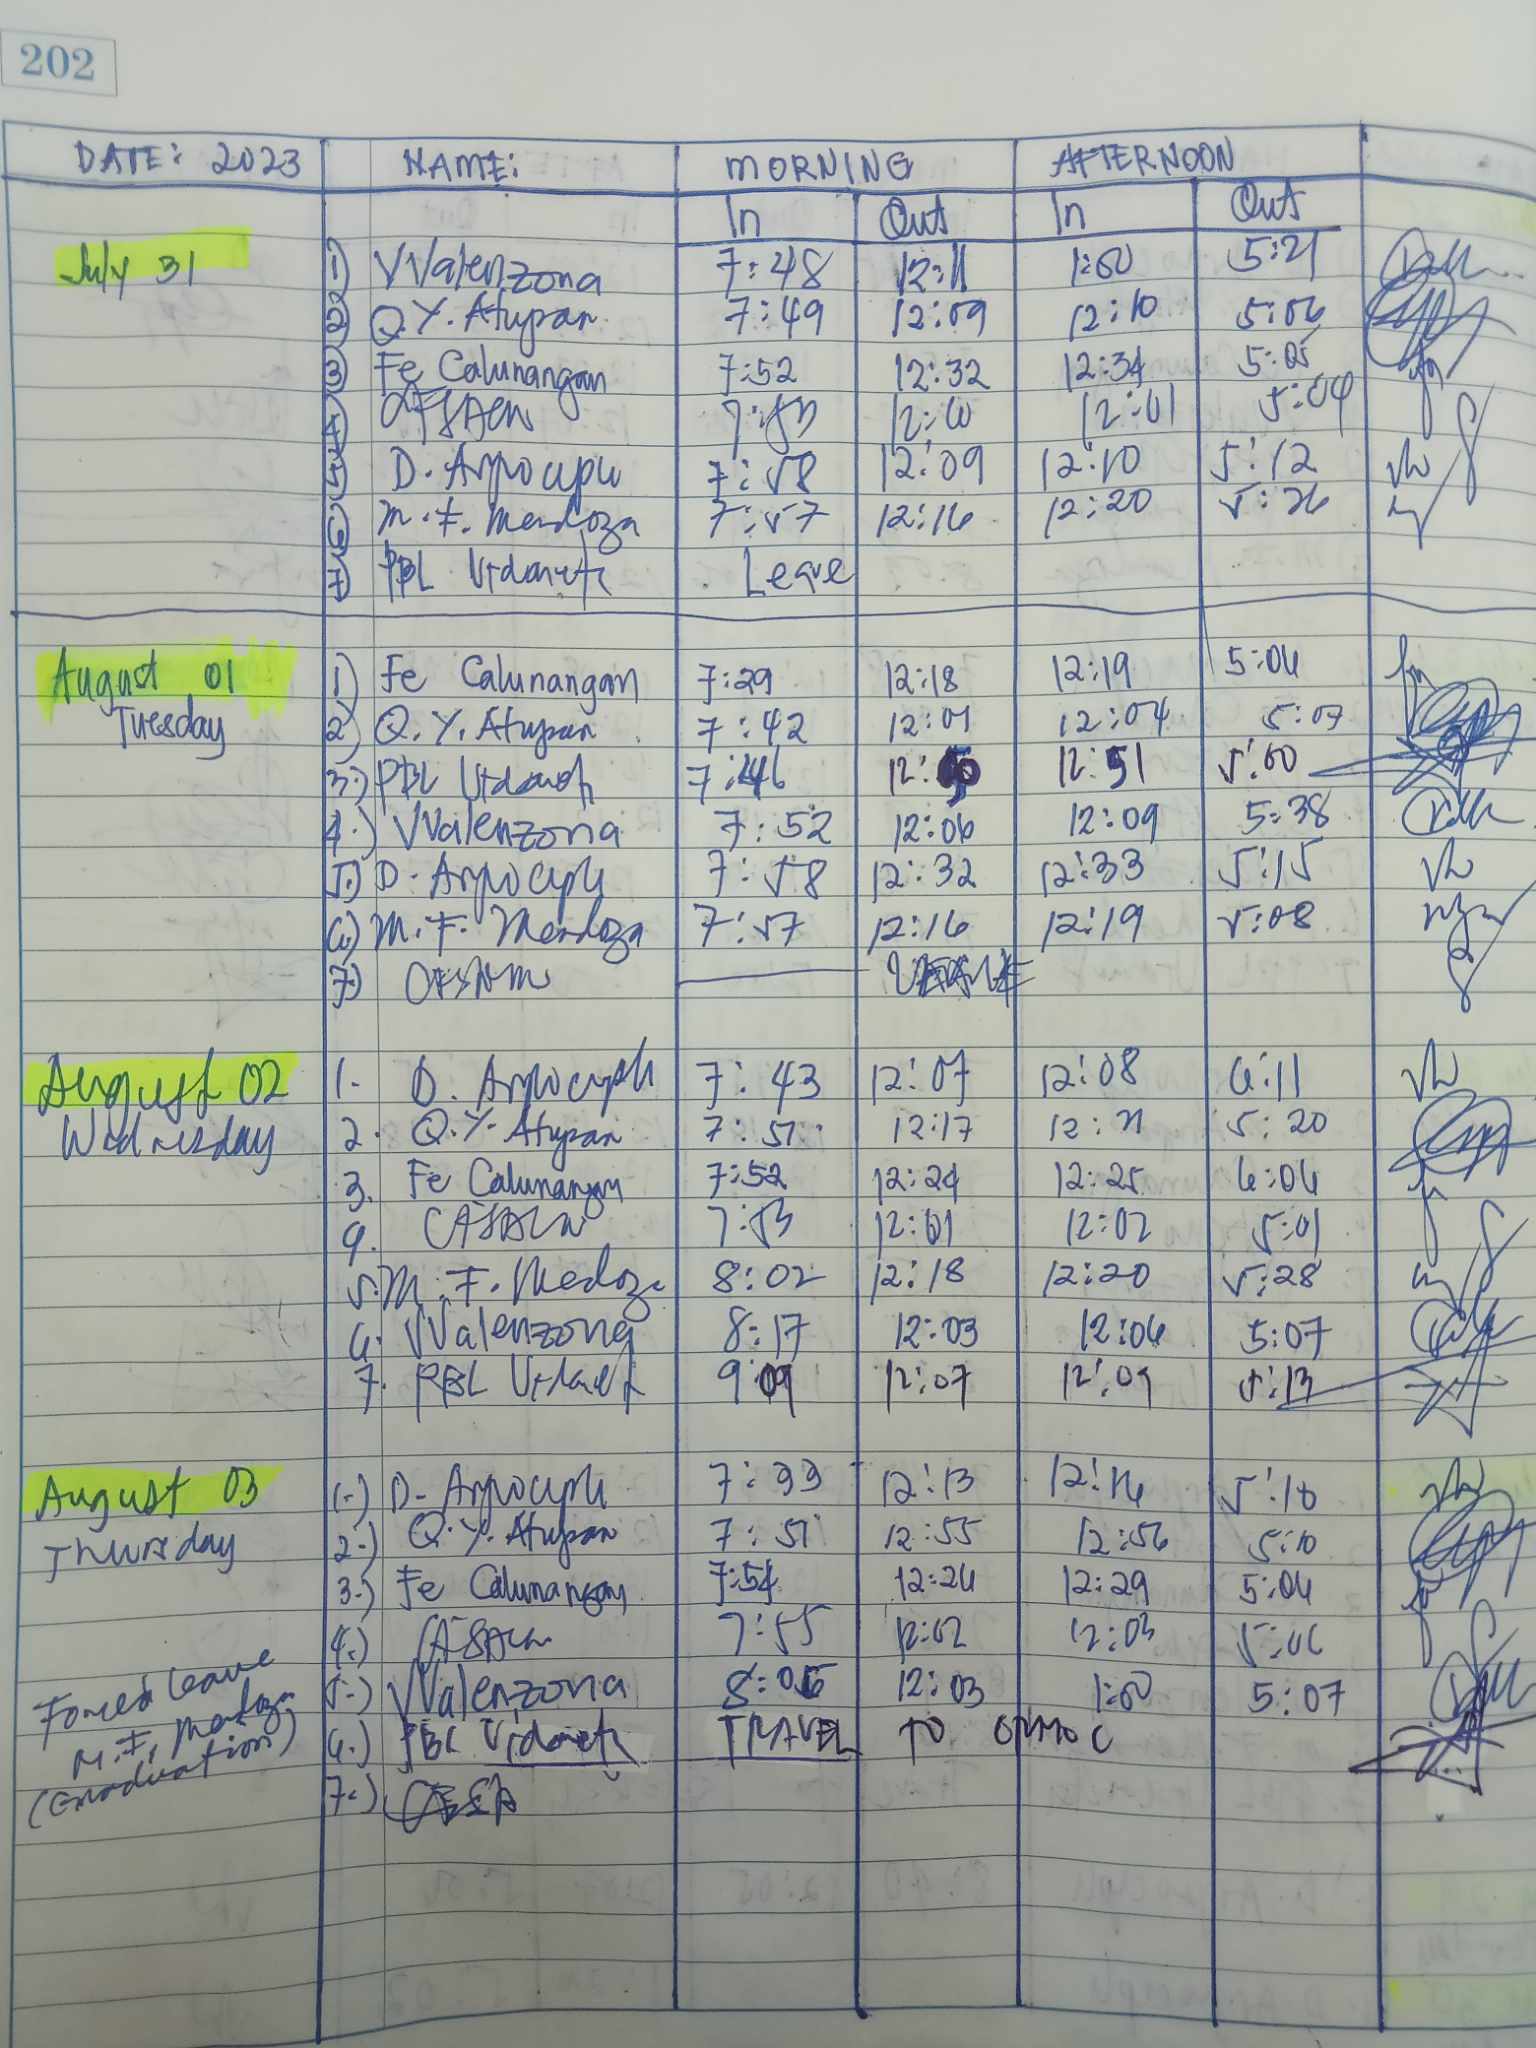 202
DATE: 2023 NAME: MORNING AFTERNOON
In Out In Out
July 31 1) VValenzona 7:48 12:11 1:00 5:21
2) Q.Y. Atupan 7:49 12:09 12:10 5:06
3) Fe Calunangan 7:52 12:32 12:34 5:05
4) 7:53 12:01 5:04
5) D. 7:58 12:09 12:10 5:12
6) M.F. Mendoza 7:57 12:16 12:20 5:26
7) PBL Leave
August 01 1) Fe Calunangan 7:29 12:18 12:19 5:06
Tuesday 2) Q.Y. Atupan 7:42 12:01 12:04 5:07
3.) PBL 7:46 12:51 5:00
4.) VValenzona 7:52 12:06 12:09 5:38
5.) D. 7:58 12:32 12:33 5:15
6.) M.F. Mendoza 7:57 12:16 12:19 5:08
7.)
August 02 1. D. 7:43 12:07 12:08 6:11
Wednesday 2. Q.Y. Atupan 7:51 12:17 12:21 5:20
3. Fe Calunangan 7:52 12:24 12:25 6:06
4. 7:53 12:01 12:02 5:01
5. M.F. Medoza 8:02 12:18 12:20 5:28
6. VValenzona 8:17 12:03 12:06 5:07
7. PBL 9:09 12:07 12:09 5:13
August 03 1.) D. 7:33 12:13 12:14 5:10
Thursday 2.) Q.Y. Atupan 7:51 12:55 12:56 5:10
3.) Fe Calunangan 7:54 12:26 12:29 5:06
4.) 7:55 12:02 12:03 5:06
Forced leave 5.) VValenzona 12:03 1:00 5:07
M.F. Mendoza 6.) PBL TRAVEL TO ORMOC
(Graduation) 7.)